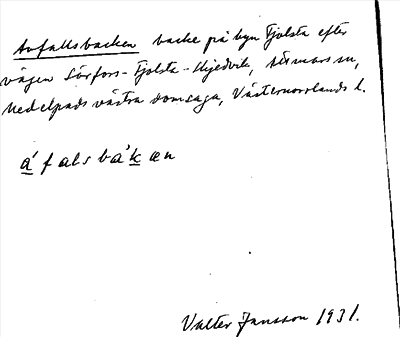 Avfallsbacken backe på byn Fjolsta efter
vägen Sörfors-Fjolsta-Mjedvik, Attmars sn,
Medelpads västra domsaga, Västernorrlands l.
á f als b a' k æ n
Valter Jansson 1931.